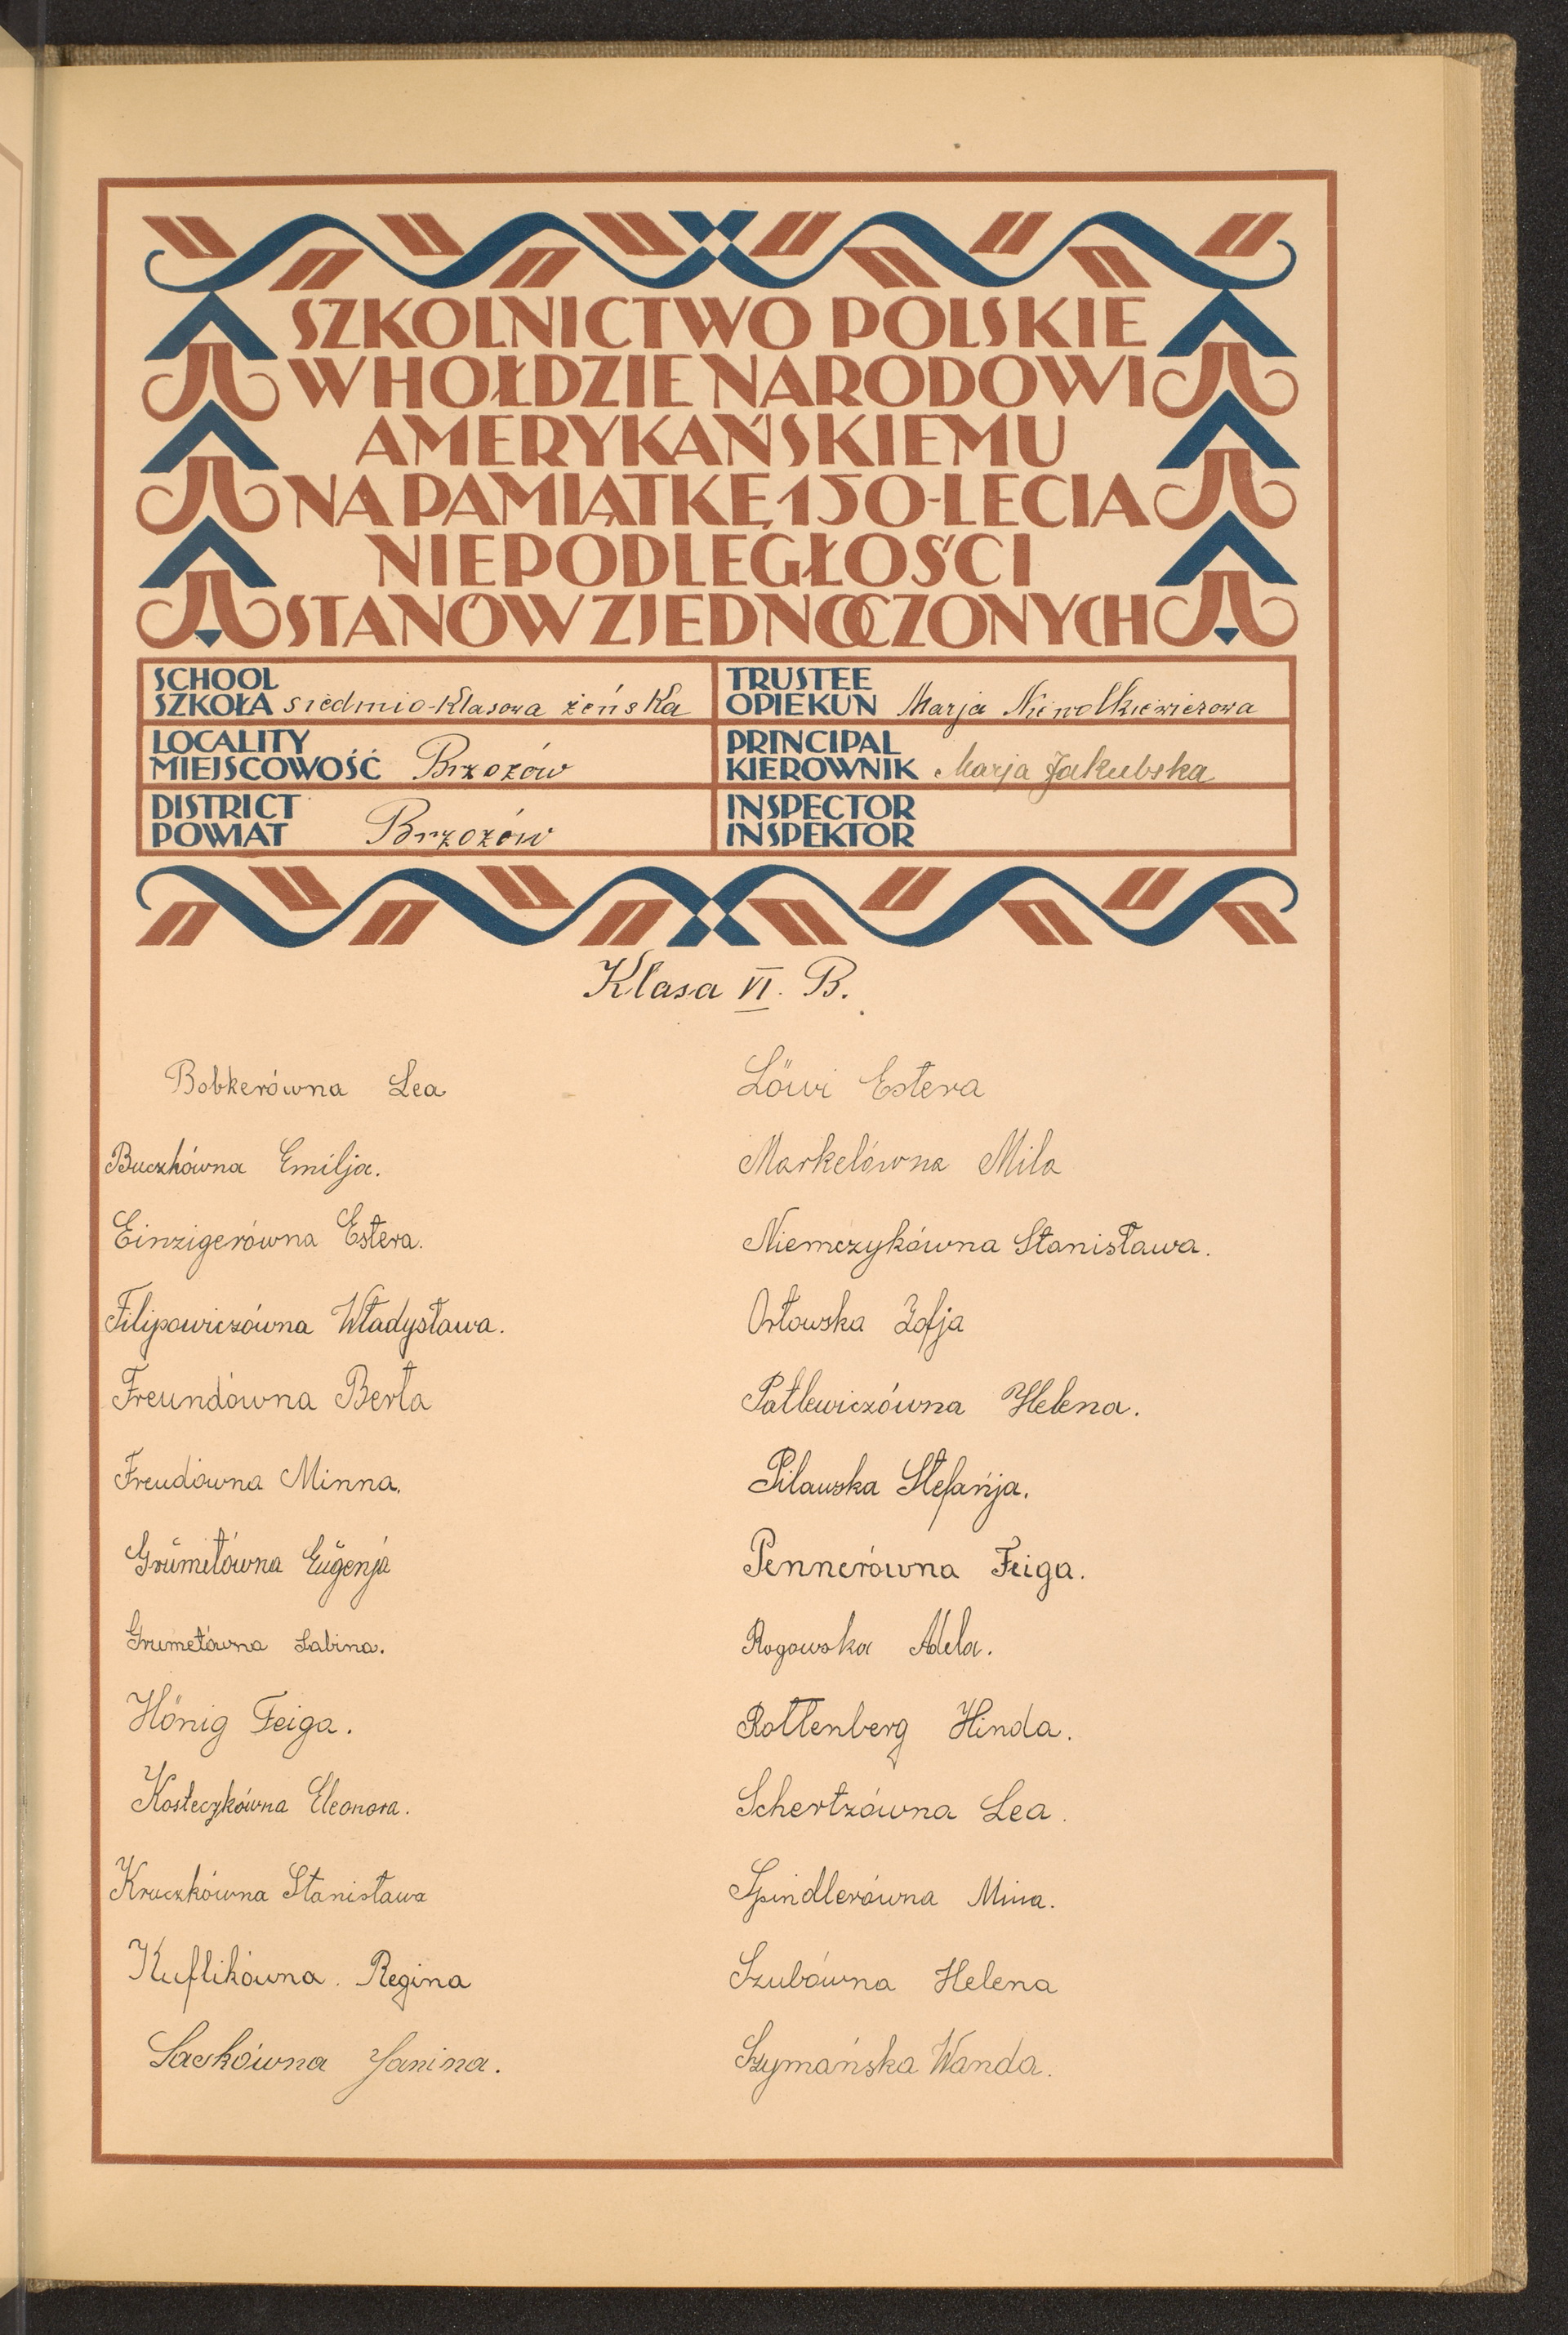 SZKOLNICTWO POLSKIE
W HOŁDZIE NARODOWI
AMERYKAŃSKIEMU
NA PAMIĄTKĘ 150-LECIA
NIEPODLEGŁOŚCI
STANÓW ZJEDNOCZONYCH
SCHOOL
SZKOŁA siedmio-klasowa żeńska
TRUSTEE
OPIEKUN Marja
LOCALITY
MIEJSCOWOŚĆ Brzozów
PRINCIPAL
KIEROWNIK Marja Jakubska
DISTRICT
POWIAT Brzozów
INSPECTOR
INSPEKTOR
Klasa VI. B.
Bobkerówna Lea
Buczkówna Emilja.
Einzigerówna Estera.
Filipowiczówna Władysława.
Freundówna Berta
Freudówna Minna.
Grűmetówna Eugenja
Grumetówna Sabina.
Hönig Feiga.
Kosteczkówna Eleonora.
Kruczkówna Stanisława
Kuflikówna. Regina
Laskówna Janina.
Löwi Estera
Markelówna Mila
Niemczykówna Stanisława.
Orłowska Zofja
Patlewiczówna Helena.
Pilawska Stefańja.
Pennerówna Feiga.
Rogowska Adela.
Rottenberg Hinda.
Schertzówna Lea.
Spindlerówna Mina.
Szubówna Helena
Szymańska Wanda.